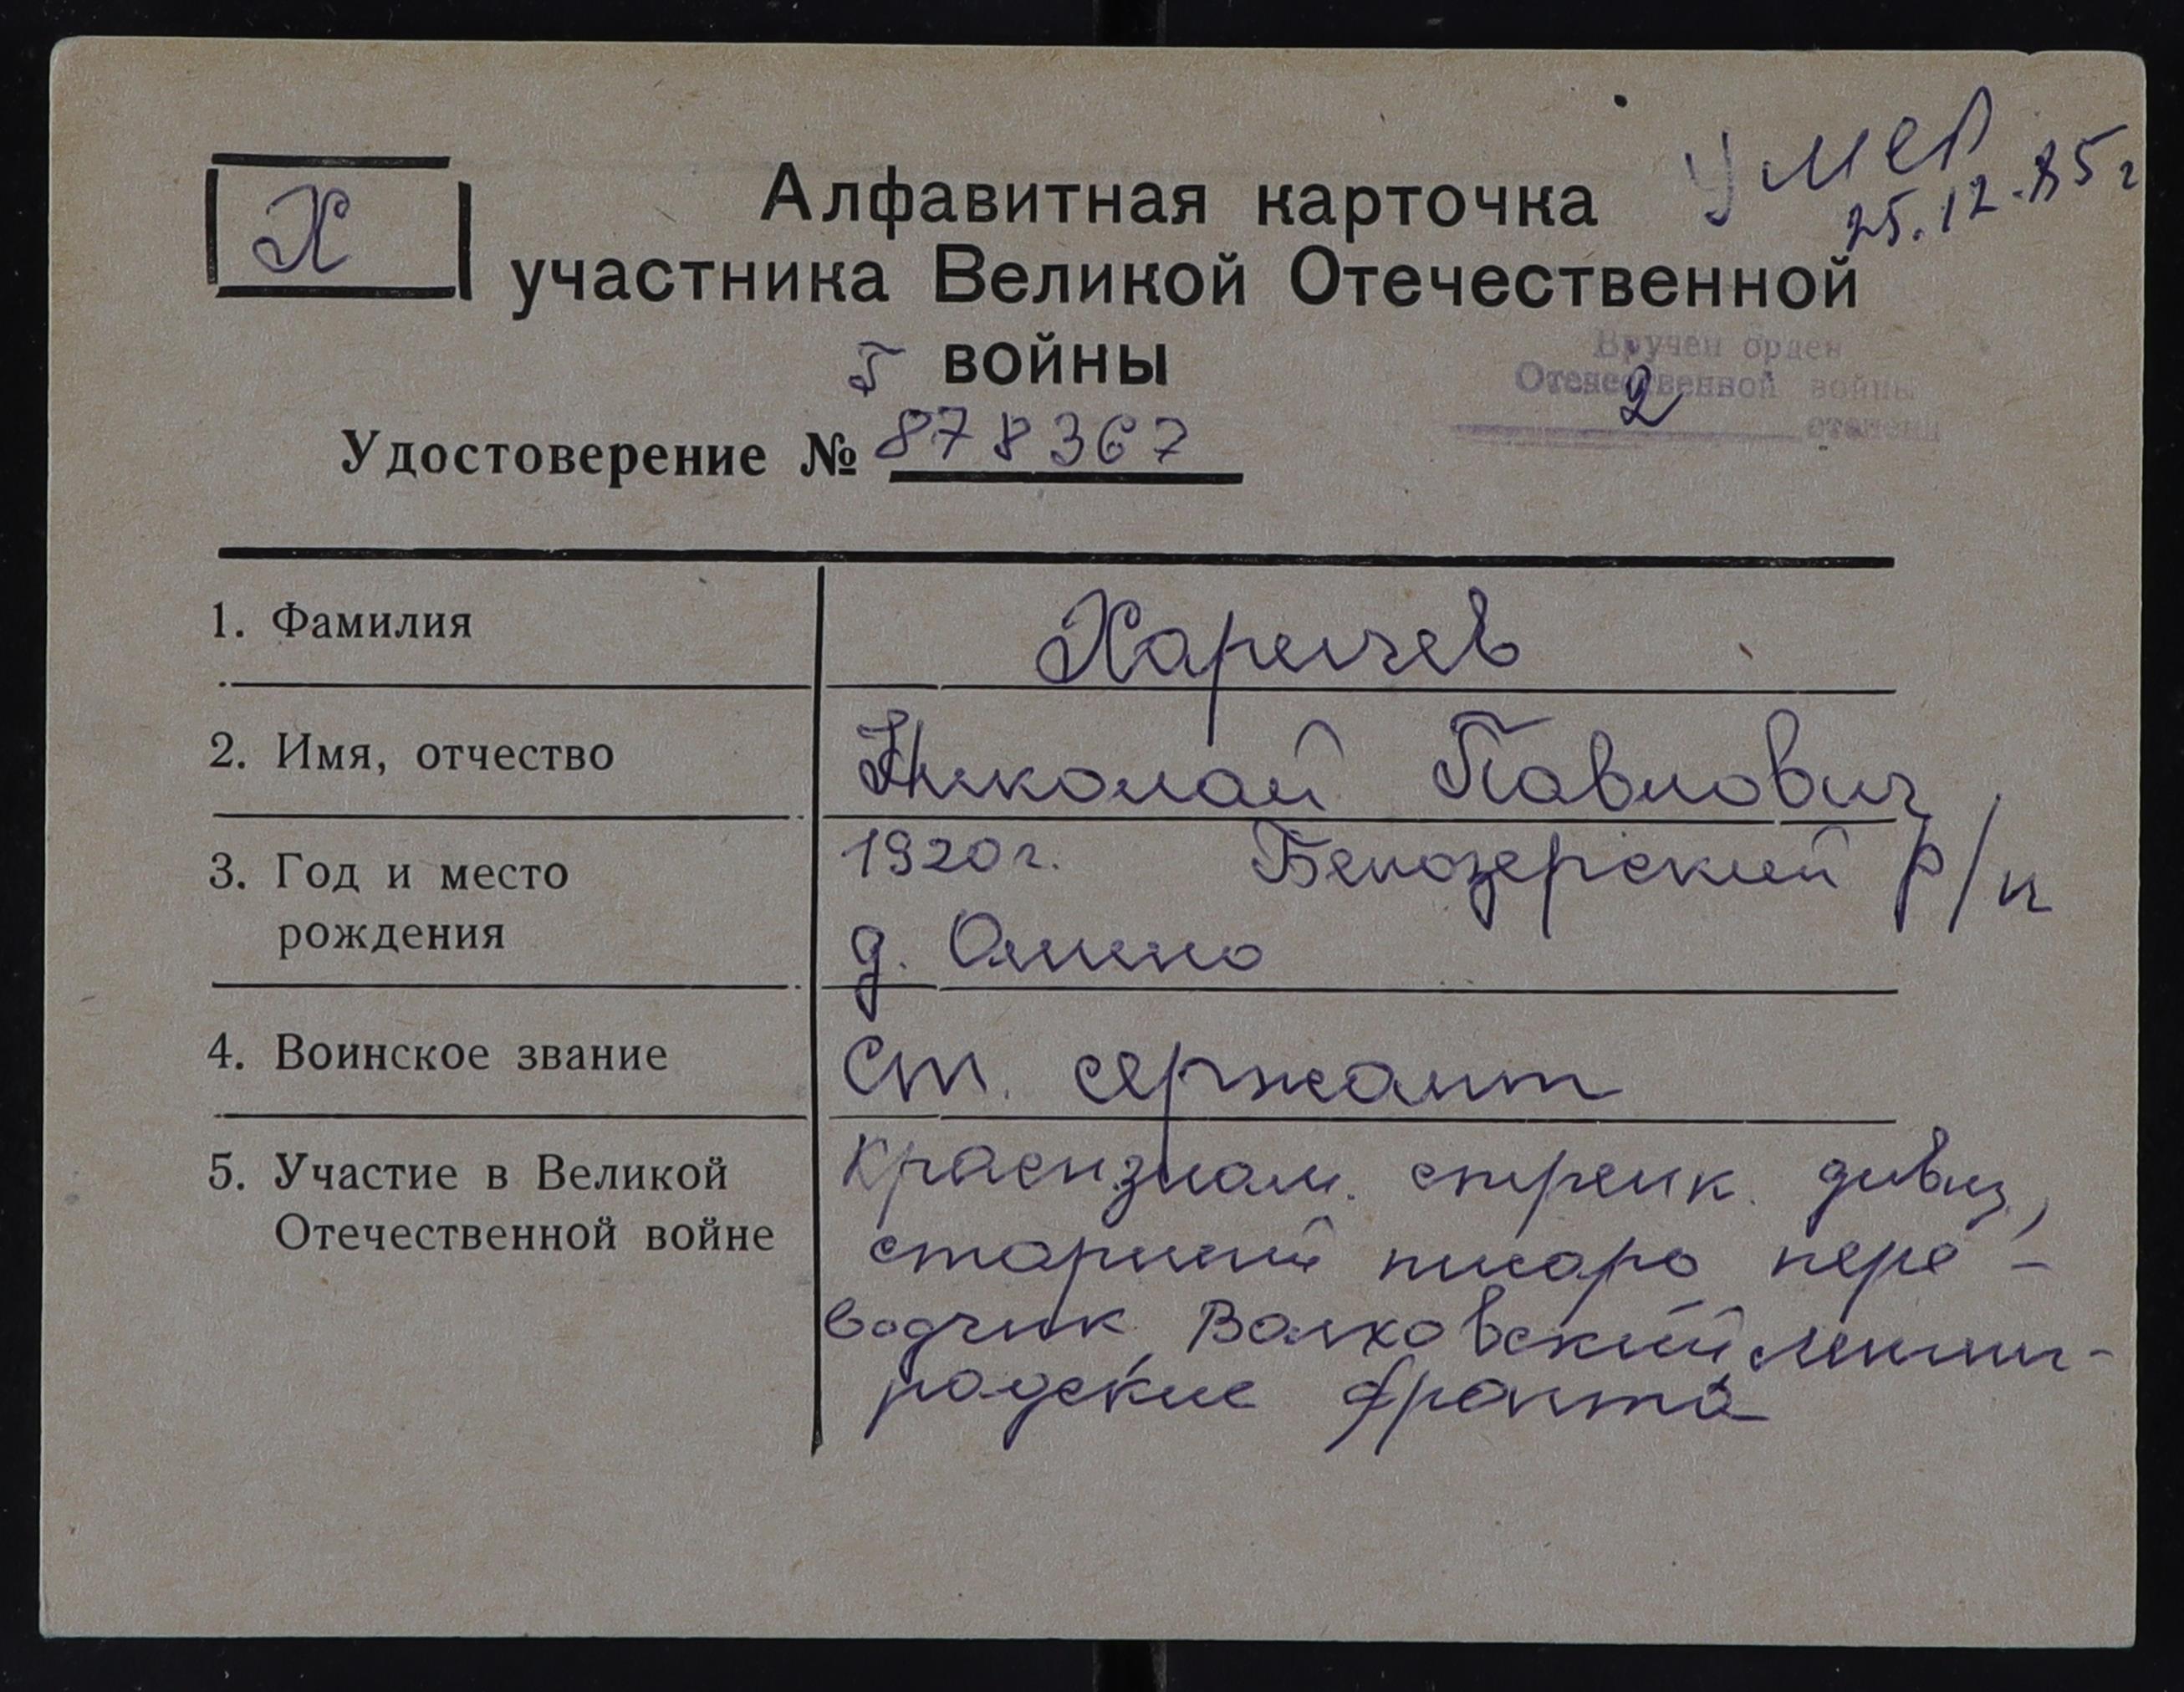 Умер
25.12.85г
Х
Алфавитная карточка
участника Великой Отечественной
войны
Вручен орден
Отечественной войны
2 степени
Удостоверение № Г 878367
1. Фамилия
Харичев
2. Имя, отчество
Николай Павлович
3. Год и место рождения
1920г. Белозерский р/н
д.
4. Воинское звание
Ст. сержант
5. Участие в Великой
Отечественной войне
Краснознам. стрелк. дивиз,
старший писарь пере-
водчик, Волховский, Ленинг-
радские фронта